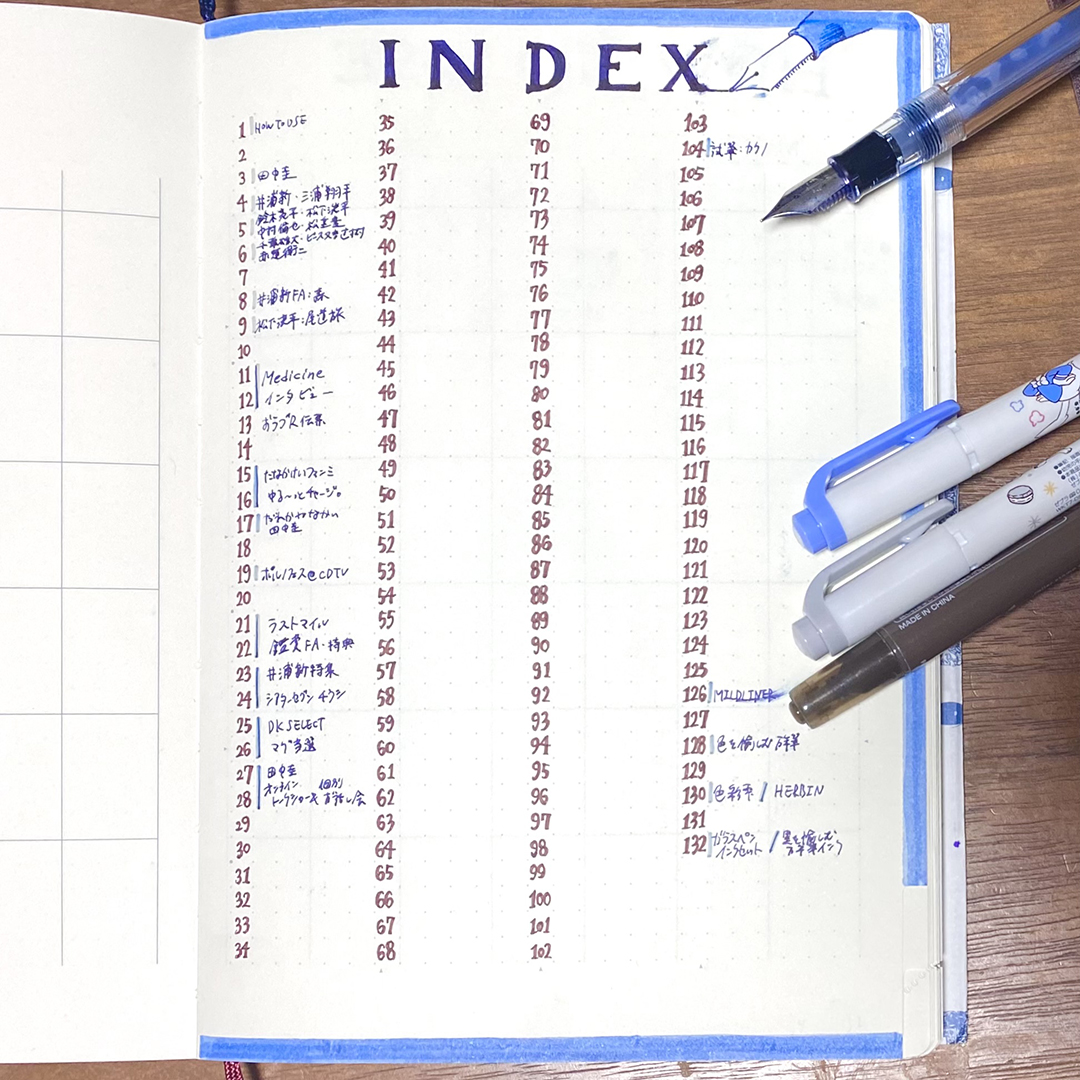 INDEX
1 HOW TO USE
2
3 田中圭
4 井浦新・三浦翔平
鈴木亮平・松下洸平
5 中村倫也・
6
7
8 井浦新FA:森
9 松下洸平:尾道旅
10
11 Medicine
12 インタビュー
13 おラブR伝系
14
15 たなかけいフィンミ
16 ゆる〜とチャージ。
17
田中圭
18
19 ポルノフェス@CDTV
20
21 ラストマイル
22 鑑賞FA・特典
23 井浦新特集
24 シアターセブン チラシ
25 DK SELECT
26 マグ当選
27 田中圭
オンライン 個別
28 トークショー お話し会
29
30
31
32
33
34
35
36
37
38
39
40
41
42
43
44
45
46
47
48
49
50
51
52
53
54
55
56
57
58
59
60
61
62
63
64
65
66
67
68
69
70
71
72
73
74
75
76
77
78
79
80
81
82
83
84
85
86
87
88
89
90
91
92
93
94
95
96
97
98
99
100
101
102
103
104 試筆:カクノ
105
106
107
108
109
110
111
112
113
114
115
116
117
118
119
120
121
122
123
124
125
126 MILDLINER
127
128 色を愉しむ万年筆
129
130 色彩雫 / HERBIN
131
132 ガラスペン / 墨を愉しむ
インクセット 万年筆インク
MADE IN CHINA